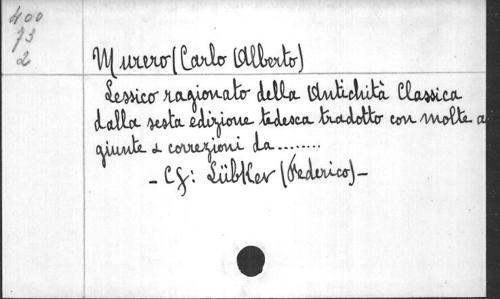 400
73
2
Murero (Carlo Alberto)
Lessico ragionato della Antichità Classica
dalla sesta edizione tedesca tradotto con molte a
giunte & correzioni da ........
- Cf: Lübker (Federico) -